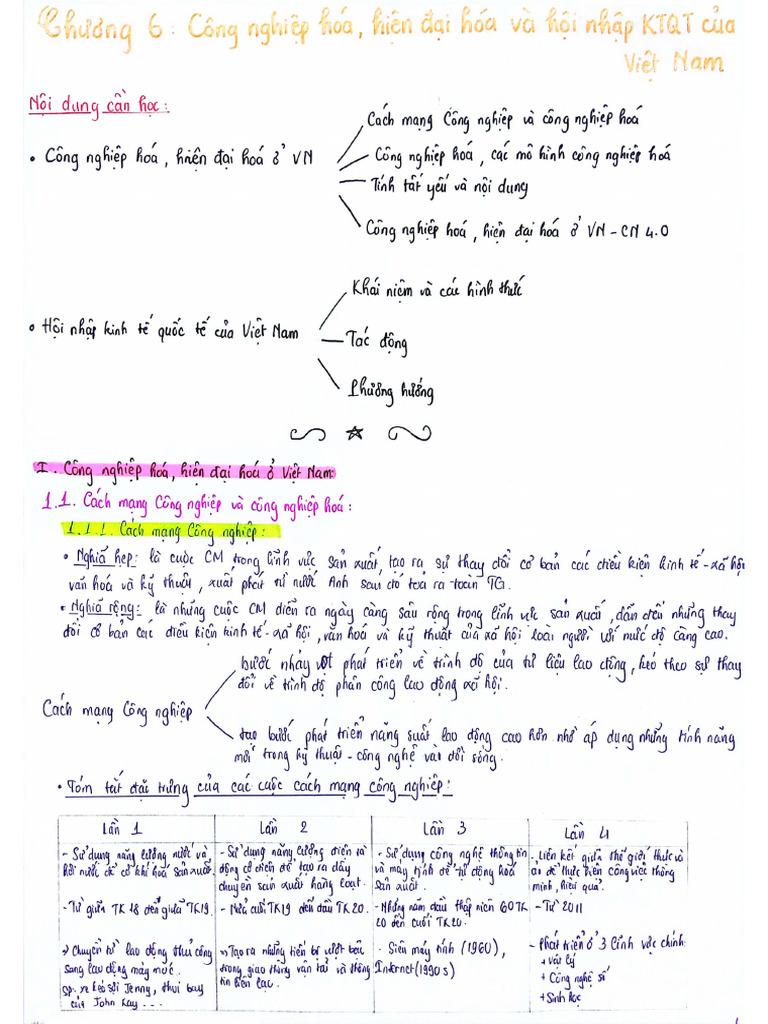 Chương 6: Công nghiệp hoá, hiện đại hóa và hội nhập KTQT của
Việt Nam
Nội dung cần học:
• Công nghiệp hoá, hiện đại hoá ở VN
Cách mạng Công nghiệp và công nghiệp hoá
Công nghiệp hoá, các mô hình công nghiệp hoá
Tính tất yếu và nội dung
Công nghiệp hoá, hiện đại hoá ở VN - CN 4.0
• Hội nhập kinh tế quốc tế của Việt Nam
Khái niệm và các hình thức
Tác động
Phương hướng
I. Công nghiệp hoá, hiện đại hoá ở Việt Nam:
1.1. Cách mạng Công nghiệp và công nghiệp hoá:
1.1.1. Cách mạng Công nghiệp:
• Nghĩa hẹp: là cuộc CM trong lĩnh vực sản xuất, tạo ra sự thay đổi cơ bản các điều kiện kinh tế-xã hội
văn hoá và kỹ thuật, xuất phát từ nước Anh sau đó toả ra toàn TG.
• Nghĩa rộng: là những cuộc CM diễn ra ngày càng sâu rộng trong lĩnh vực sản xuất, dẫn đến những thay
đổi cơ bản các điều kiện kinh tế-xã hội, văn hoá và kỹ thuật của xã hội loài người với mức độ càng cao.
Cách mạng Công nghiệp
bước nhảy vọt phát triển về trình độ của tư liệu lao động, kéo theo sự thay
đổi về trình độ phân công lao động xã hội.
tạo bước phát triển năng suất lao động cao hơn nhờ áp dụng những tính năng
mới trong kỹ thuật-công nghệ vào đời sống.
• Tóm tắt đặc trưng của các cuộc cách mạng công nghiệp:
Lần 1
- Sử dụng năng lượng nước và
hơi nước để cơ khí hoá sản xuất
- Từ giữa TK 18 đến giữa TK19.
→ Chuyển từ lao động thủ công
sang lao động máy móc.
sp: xe kéo sợi Jenny, thoi bay
của John Kay...
Lần 2
- Sử dụng năng lượng điện và
động cơ điện để tạo ra dây
chuyền sản xuất hàng loạt.
- Nửa cuối TK19 đến đầu TK20.
→ Tạo ra những tiến bộ vượt bậc
trong giao thông vận tải và thông
tin liên lạc.
Lần 3
- Sử dụng công nghệ thông tin
và máy tính để tự động hoá
sản xuất.
- Những năm đầu thập niên 60 TK
20 đến cuối TK20.
- Siêu máy tính (1960),
Internet (1990s)
Lần 4
- Liên kết giữa thế giới thực và
ảo để thực hiện công việc thông
minh, hiệu quả.
- Từ 2011
- Phát triển ở 3 lĩnh vực chính:
+ Vật lý
+ Công nghệ số
+ Sinh học